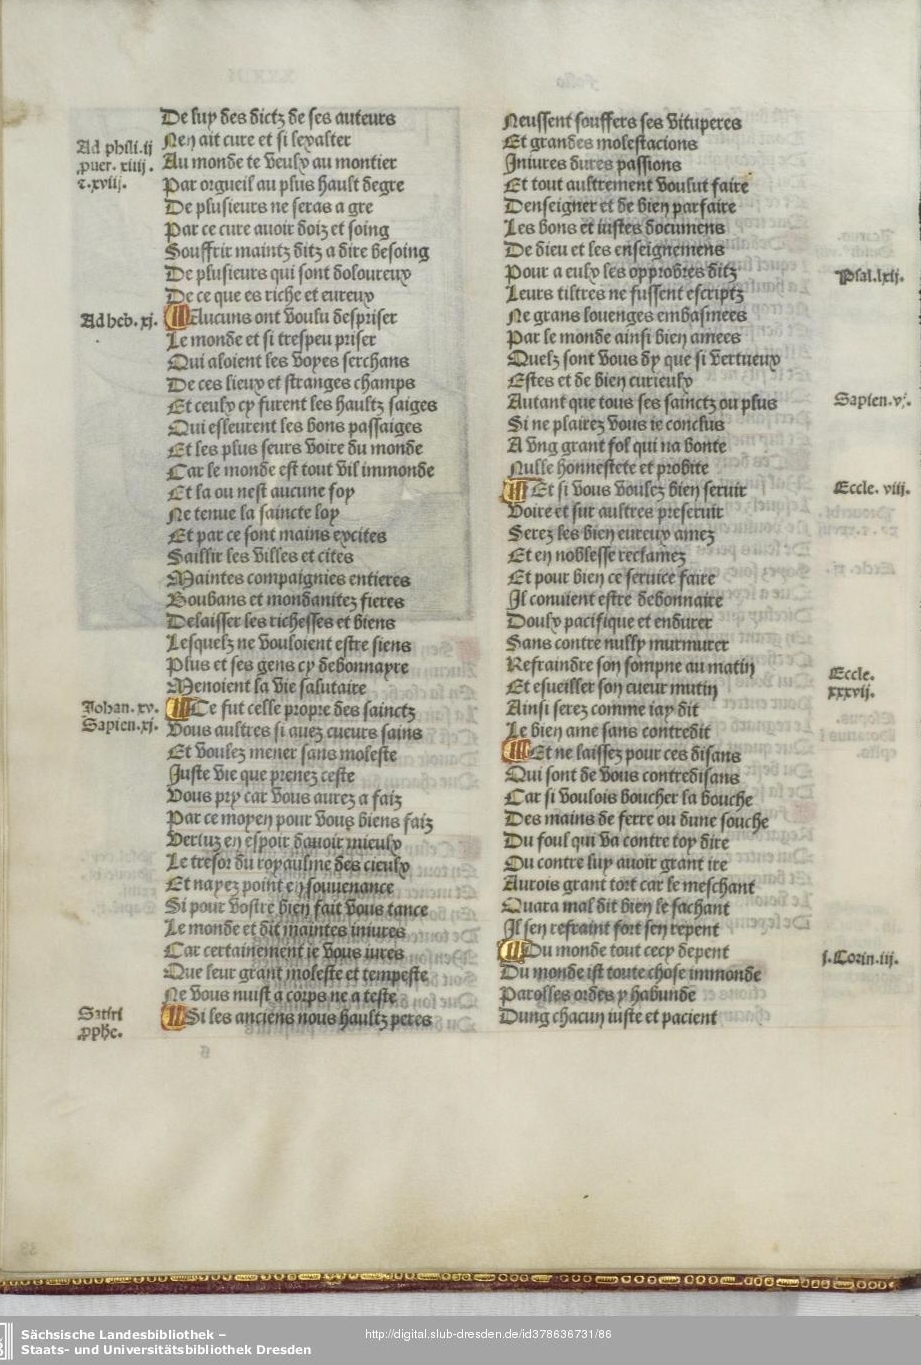 De luy des dictz de ses auteurs
Nen ait cure et si lexalter
Au monde te veulx au montier
Par orgueil au plus hault degre
De plusieurs ne seras a gre
Par ce cure avoir doiz et soing
Souffrir maintz ditz a dire besoing
De plusieurs qui sont doloureux
De ce que es riche et eureux
Aucuns ont voulu despriser
Le monde et si trespeu priser
Qui aloient les voyes serchans
De ces lieux et stranges champs
Et ceulx cy furent les haultz saiges
Qui esleurent les bons passaiges
Et les plus seurs voire du monde
Car le monde est tout vil immonde
Et la ou nest aucune foy
Ne tenue la saincte loy
Et par ce sont mains excites
Saillir les villes et cites
Maintes compaignies entieres
Boubans et mondanitez fieres
Delaisser les richesses et biens
Lesquelz ne vouloient estre siens
Plus et ses gens cy debonnayre
Menoient la vie salutaire
Ce fut celle propre des sainctz
Vous aultres si avez cueurs sains
Et voulez mener sans moleste
Juste vie que prenez ceste
Vous pry car vous aurez a faiz
Par ce moyen pour vous biens faiz
Vertuz en espoir davoir mieulx
Le tresor du royaulme des cieulx
Et nayez point en souvenance
Si pour vostre bien fait vous tance
Le monde et dit maintes iniures
Car certainement ie vous iures
Que leur grant moleste et tempeste
Ne vous nuist a corps ne a teste
Si les anciens nous haultz peres
Ad phili.ij
puer. xiiij.
z.xvij.
Ad heb. xj.
Johan. xv.
Sapien.xj.
Satiri
pphe.
Neussent souffers ses vituperes
Et grandes molestacions
Iniures dures passions
Et tout aultrement voulut faire
Denseigner et de bien parfaire
Les bons et iustes documens
De dieu et les enseignemens
Pour a eulx les opprobres ditz
Leurs tiltres ne fussent escriptz
Ne grans louenges embasmees
Par le monde ainsi bien amees
Quelz sont vous dy que si vertueux
Estes et de bien curieulx
Autant que tous ses sainctz ou plus
Si ne plairez vous ie conclus
A vng grant fol qui na bonte
Nulle honnestete et probite
Et si vous voulez bien servir
Voire et sur aultres preservir
Serez les bien eureux amez
Et en noblesse reclamez
Et pour bien ce service faire
Il convient estre debonnaire
Doulx pacifique et endurer
Sans contre nully murmurer
Refraindre son sompne au matin
Et esueiller son cueur mutin
Ainsi serez comme iay dit
Le bien ame sans contredit
Et ne laissez pour ces disans
Qui sont de vous contredisans
Car si voulois boucher la bouche
Des mains de ferre ou dune souche
Du foul qui va contre toy dire
Ou contre luy avoir grant ire
Aurois grant tort car le meschant
Quara mal dit bien le sachant
Il sen refraint fort sen repent
Du monde tout cecy depent
Du monde ist toute chose immonde
Parolles ordes y habunde
Dung chacun iuste et pacient
Psal.lxij.
Sapien.v.
Eccle. viij.
Eccle.
xxxvij.
j.Corin.iij.
Sächsische Landesbibliothek –
Staats- und Universitätsbibliothek Dresden
http://digital.slub-dresden.de/id378636731/86